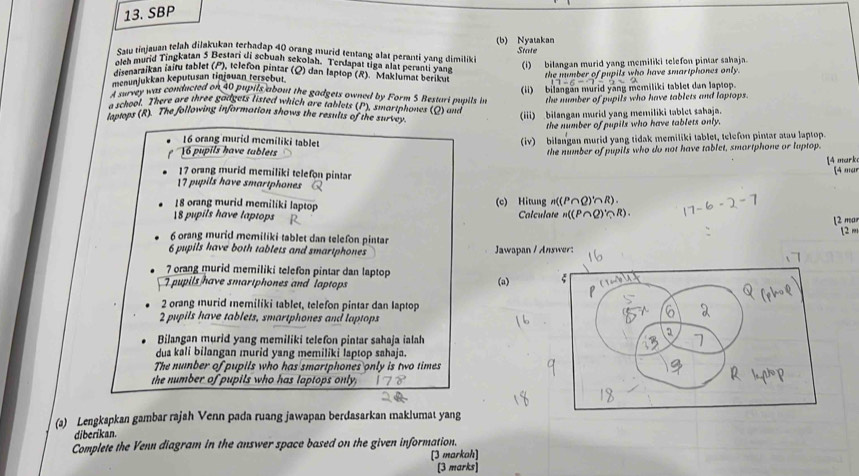 13. SBP
Satu tinjauan telah dilakukan terhadap 40 orang murid tentang alat peranti yang dimiliki
oleh murid Tingkatan 5 Bestari di sebuah sekolah. Terdapat tiga alat peranti yang
disenaraikan iaitu tablet (P), telefon pintar (Q) dan laptop (R). Maklumat berikut
menunjukkan keputusan tinjauan tersebut.
A survey was conducted on 40 pupils about the gadgets owned by Form 5 Bestari pupils in
a school. There are three gadgets listed which are tablets (P), smartphones (Q) and
laptops (R). The following information shows the results of the survey.
• 16 orang murid memiliki tablet
P 16 pupils have tablets
• 17 orang murid memiliki telefon pintar
17 pupils have smartphones Q
• 18 orang murid memiliki laptop
18 pupils have laptops R
• 6 orang murid memiliki tablet dan telefon pintar
6 pupils have both tablets and smartphones
• 7 orang murid memiliki telefon pintar dan laptop
7 pupils have smartphones and laptops
• 2 orang murid memiliki tablet, telefon pintar dan laptop
2 pupils have tablets, smartphones and laptops
• Bilangan murid yang memiliki telefon pintar sahaja ialah
dua kali bilangan murid yang memiliki laptop sahaja.
The number of pupils who has smartphones only is two times
the number of pupils who has laptops only.
178
(a) Lengkapkan gambar rajah Venn pada ruang jawapan berdasarkan maklumat yang
diberikan.
Complete the Venn diagram in the answer space based on the given information.
[3 markah]
[3 marks]
(b) Nyatakan
State
(i) bilangan murid yang memiliki telefon pintar sahaja.
the number of pupils who have smartphones only.
17-6-7-2=2
(ii) bilangan murid yang memiliki tablet dan laptop.
the number of pupils who have tablets and laptops.
(iii) bilangan murid yang memiliki tablet sahaja.
the number of pupils who have tablets only.
(iv) bilangan murid yang tidak memiliki tablet, telefon pintar atau laptop.
the number of pupils who do not have tablet, smartphone or laptop.
[4 mark
[4 mar
(c) Hitung n((P∩Q)'∩R).
Calculate n((P∩Q)'∩R).
17-6-2-7
[2 mar
[2 m
Jawapan / Answer:
16
17
(a) ξ
P (tablet
Q (phone)
5
6
2
16
2
3
7
9
9
R laptop
18
18